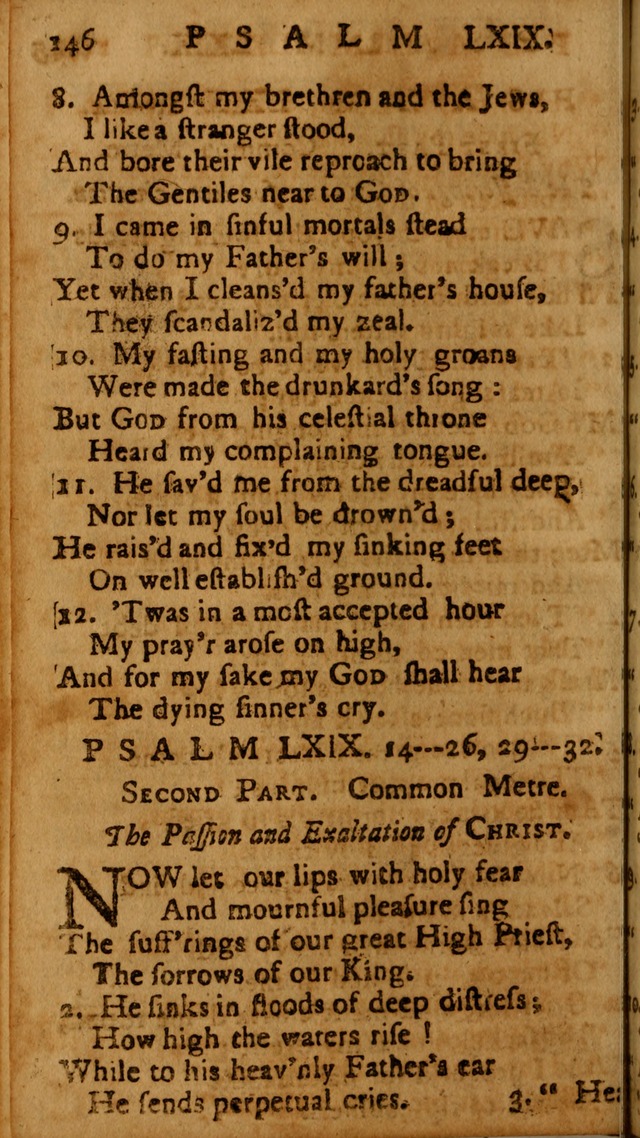 146 P S A L M LXIX.
8. Amongſt my brethren and the Jews,
I like a ſtranger ſtood,
And bore their vile reproach to bring
The Gentiles near to GOD.
9. I came in ſinful mortals ſtead
To do my Father's will;
Yet when I cleans'd my father's houſe,
They ſcandaliz'd my zeal.
[10. My faſting and my holy groans
Were made the drunkard's ſong:
But GOD from his celeſtial throne
Heard my complaining tongue.
[11. He ſav'd me from the dreadful deep,
Nor let my ſoul be drown'd;
He rais'd and fix'd my ſinking feet
On well eſtabliſh'd ground.
[12. 'Twas in a moſt accepted hour
My pray'r aroſe on high,
And for my ſake my GOD ſhall hear
The dying ſinner's cry.
P S A L M LXIX. 14---26, 29---32.
SECOND PART. Common Metre.
The Paſſion and Exaltation of CHRIST.
NOW let our lips with holy fear
And mournful pleaſure ſing
The ſuff'rings of our great High Prieſt,
The ſorrows of our King.
2. He ſinks in floods of deep diſtreſs;
How high the waters riſe!
While to his heav'nly Father's ear
He ſends perpetual cries.
3. "He